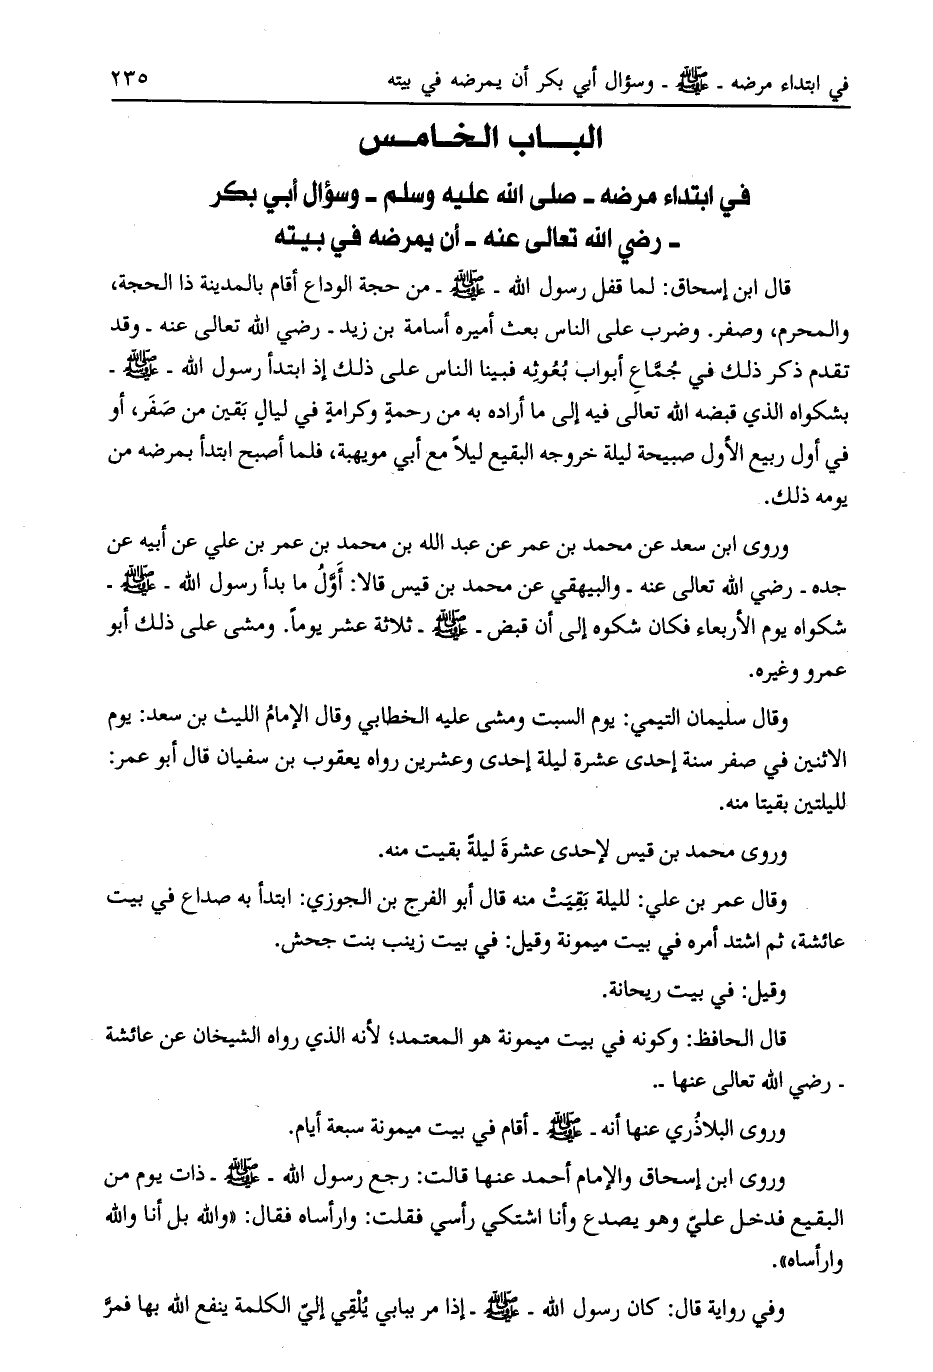 في ابتداء مرضه ـ ﷺ ـ وسؤال أبي بكر أن يمرضه في بيته ٢٣٥
الباب الخامس
في ابتداء مرضه ـ صلى الله عليه وسلم ـ وسؤال أبي بكر
ـ رضي الله تعالى عنه ـ أن يمرضه في بيته
قال ابن إسحاق: لما قفل رسول الله ـ ﷺ ـ من حجة الوداع أقام بالمدينة ذا الحجة،
والمحرم، وصفر. وضرب على الناس بعث أميره أسامة بن زيد ـ رضي الله تعالى عنه ـ وقد
تقدم ذكر ذلك في جُمَّاعِ أبواب بُعُوثِه فبينا الناس على ذلك إذ ابتدأ رسول الله ـ ﷺ ـ
بشكواه الذي قبضه الله تعالى فيه إلى ما أراده به من رحمةٍ وكرامةٍ في ليالٍ بَقين من صَفَر، أو
في أول ربيع الأول صبيحة ليلة خروجه البقيع ليلاً مع أبي مويهبة، فلما أصبح ابتدأ بمرضه من
يومه ذلك.
وروى ابن سعد عن محمد بن عمر عن عبد الله بن محمد بن عمر بن علي عن أبيه عن
جده ـ رضي الله تعالى عنه ـ والبيهقي عن محمد بن قيس قالا: أَوَّلُ ما بدأ رسول الله ـ ﷺ ـ
شكواه يوم الأربعاء فكان شكوه إلى أن قبض ـ ﷺ ـ ثلاثة عشر يوماً. ومشى على ذلك أبو
عمرو وغيره.
وقال سليمان التيمي: يوم السبت ومشى عليه الخطابي وقال الإمامُ الليث بن سعد: يوم
الاثنين في صفر سنة إحدى عشرة ليلة إحدى وعشرين رواه يعقوب بن سفيان قال أبو عمر:
لليلتين بقيتا منه.
وروى محمد بن قيس لإحدى عشرةَ ليلةً بقيت منه.
وقال عمر بن علي: لليلة بَقِيَتْ منه قال أبو الفرج بن الجوزي: ابتدأ به صداع في بيت
عائشة، ثم اشتد أمره في بيت ميمونة وقيل: في بيت زينب بنت جحش.
وقيل: في بيت ريحانة.
قال الحافظ: وكونه في بيت ميمونة هو المعتمد؛ لأنه الذي رواه الشيخان عن عائشة
ـ رضي الله تعالى عنها ـ.
وروى البلاذُري عنها أنه ـ ﷺ ـ أقام في بيت ميمونة سبعة أيام.
وروى ابن إسحاق والإمام أحمد عنها قالت: رجع رسول الله ـ ﷺ ـ ذات يوم من
البقيع فدخل عليّ وهو يصدع وأنا اشتكي رأسي فقلت: وارأساه فقال: «والله بل أنا والله
وارأساه».
وفي رواية قال: كان رسول الله ـ ﷺ ـ إذا مر ببابي يُلْقِي إليّ الكلمة ينفع الله بها فمرَّ